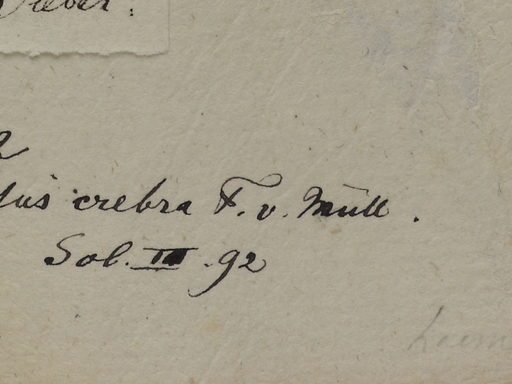 Sieber.
lus crebra F. v. Müll.
Sol. III. 92